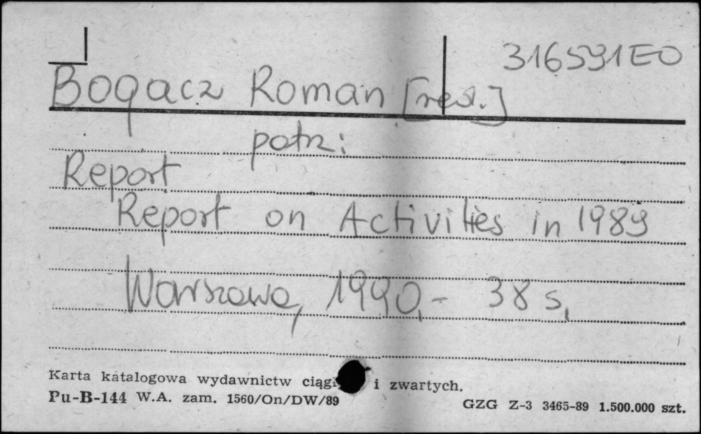 316591EO
Bogacz Roman [red.]
patrz:
Report
Report on Activities in 1989
Warszawa, 1990.- 38 s.
Karta katalogowa wydawnictw i zwartych.
Pu-B-144 W.A. zam. 1560/On/DW/89
GZG Z-3 3465-89 1.500.000 szt.